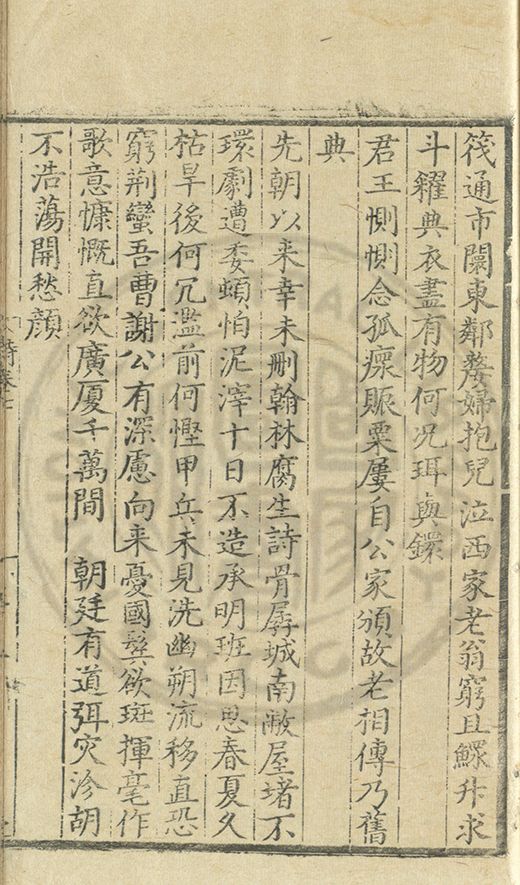 筏通市闤東鄰嫠婦抱兒泣西家老翁窮且鰥升求
斗糴典衣盡有物何况珥與鐶
君王惻惻念孤瘝賑粟屢自公家頒故老相傳乃舊
典
先朝以来幸未刪翰林腐生詩骨孱城南敝屋堵不
環劇遭委頓怕泥滓十日不造承明班因思春夏久
枯旱後何冗濫前何慳甲兵未見洗幽朔流移直恐
窮荊蠻吾曹謝公有深慮向来憂國鬂欲斑揮毫作
歌意慷慨直欲廣厦千萬間　朝廷有道弭灾沴胡
不浩蕩開愁顔
詩卷七